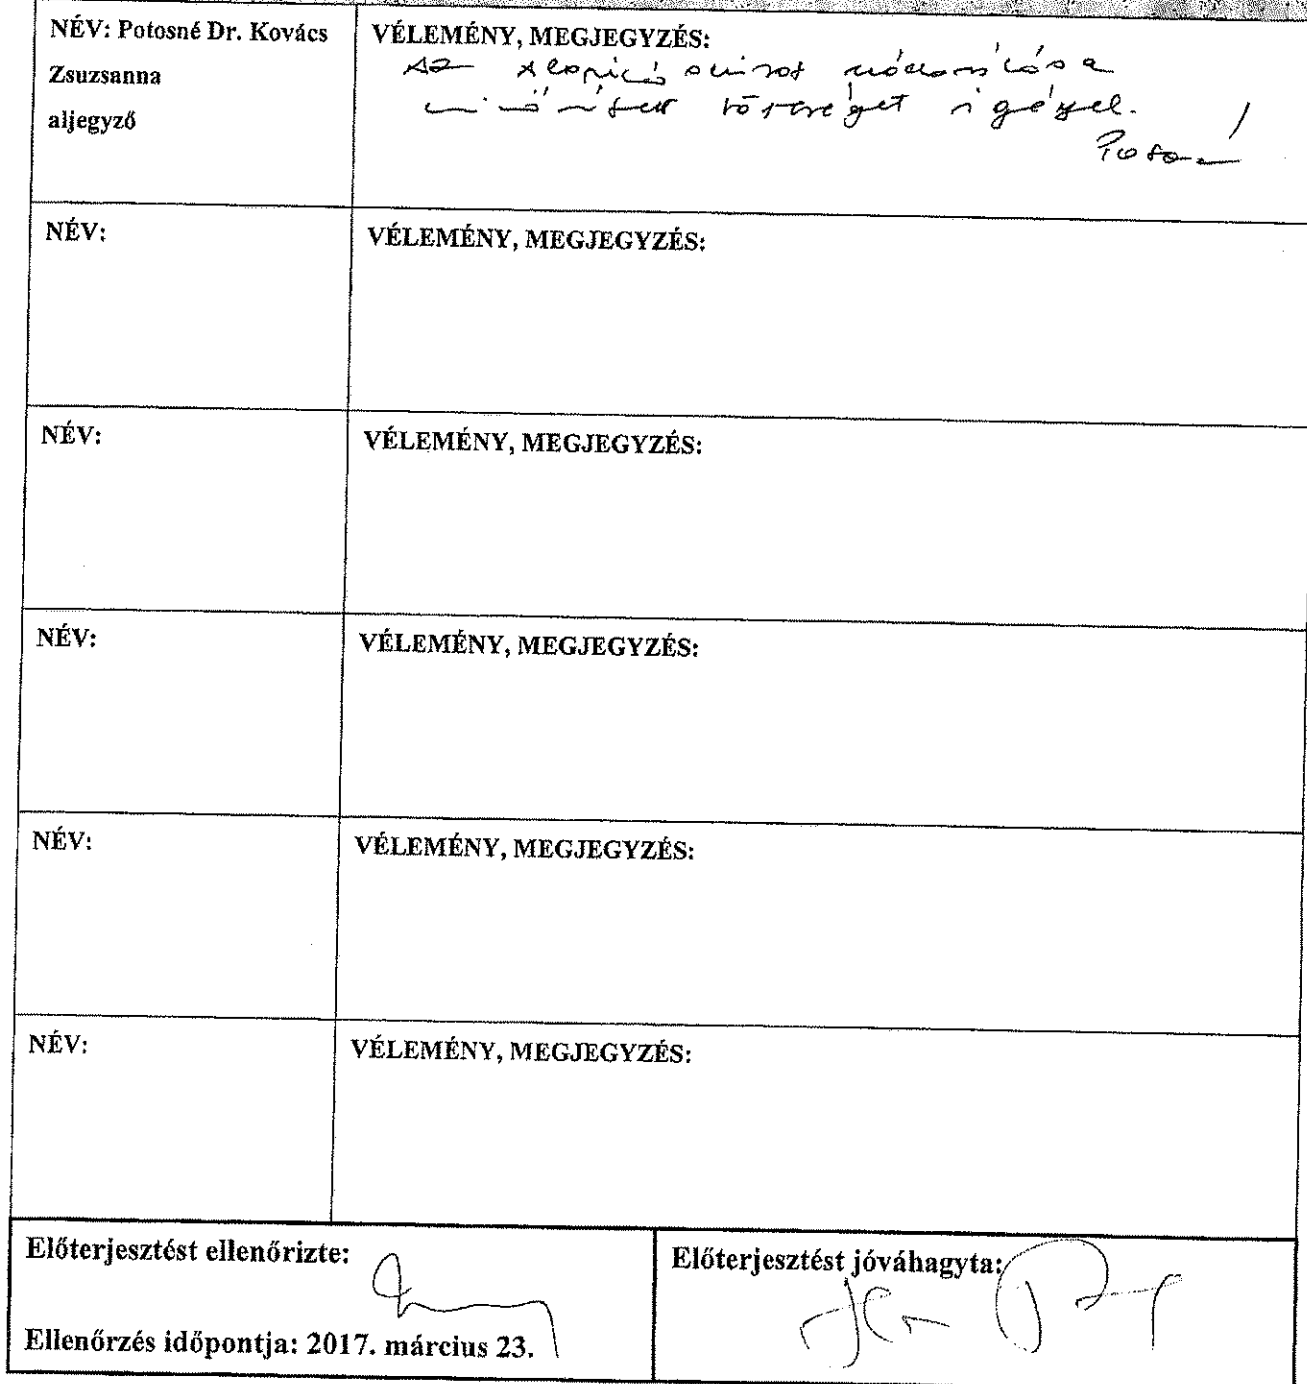 NÉV: Potosné Dr. Kovács
Zsuzsanna
aljegyző
VÉLEMÉNY, MEGJEGYZÉS:
Az alapító okirat módosítása
minősített többséget igényel.
NÉV:
VÉLEMÉNY, MEGJEGYZÉS:
NÉV:
VÉLEMÉNY, MEGJEGYZÉS:
NÉV:
VÉLEMÉNY, MEGJEGYZÉS:
NÉV:
VÉLEMÉNY, MEGJEGYZÉS:
NÉV:
VÉLEMÉNY, MEGJEGYZÉS:
Előterjesztést ellenőrizte:
Ellenőrzés időpontja: 2017. március 23.
Előterjesztést jóváhagyta: